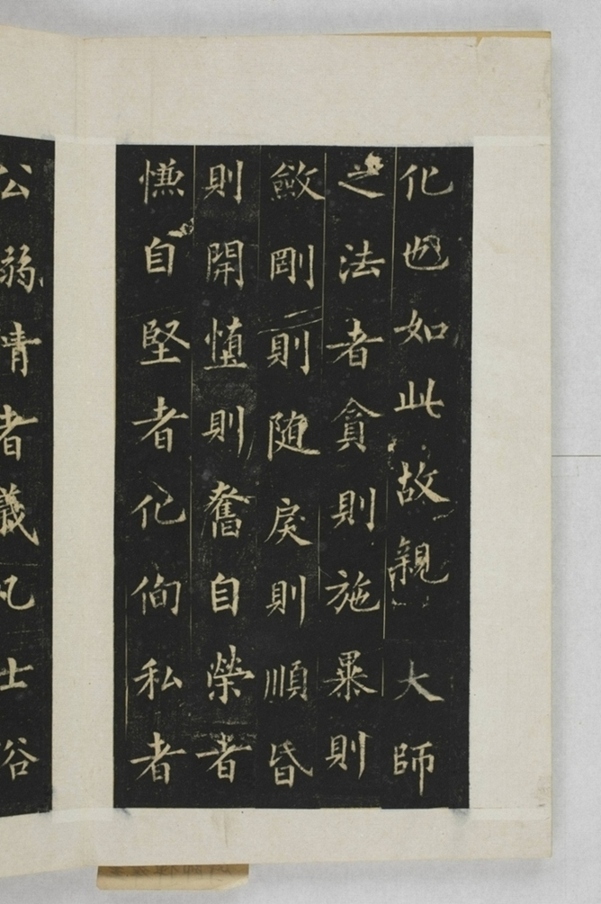 化也如此故親大師
之法者貪則施暴則
斂剛則随戾則順昏
則開則奮自榮者
慊自堅者化侚私者
公溺情者義凡士俗